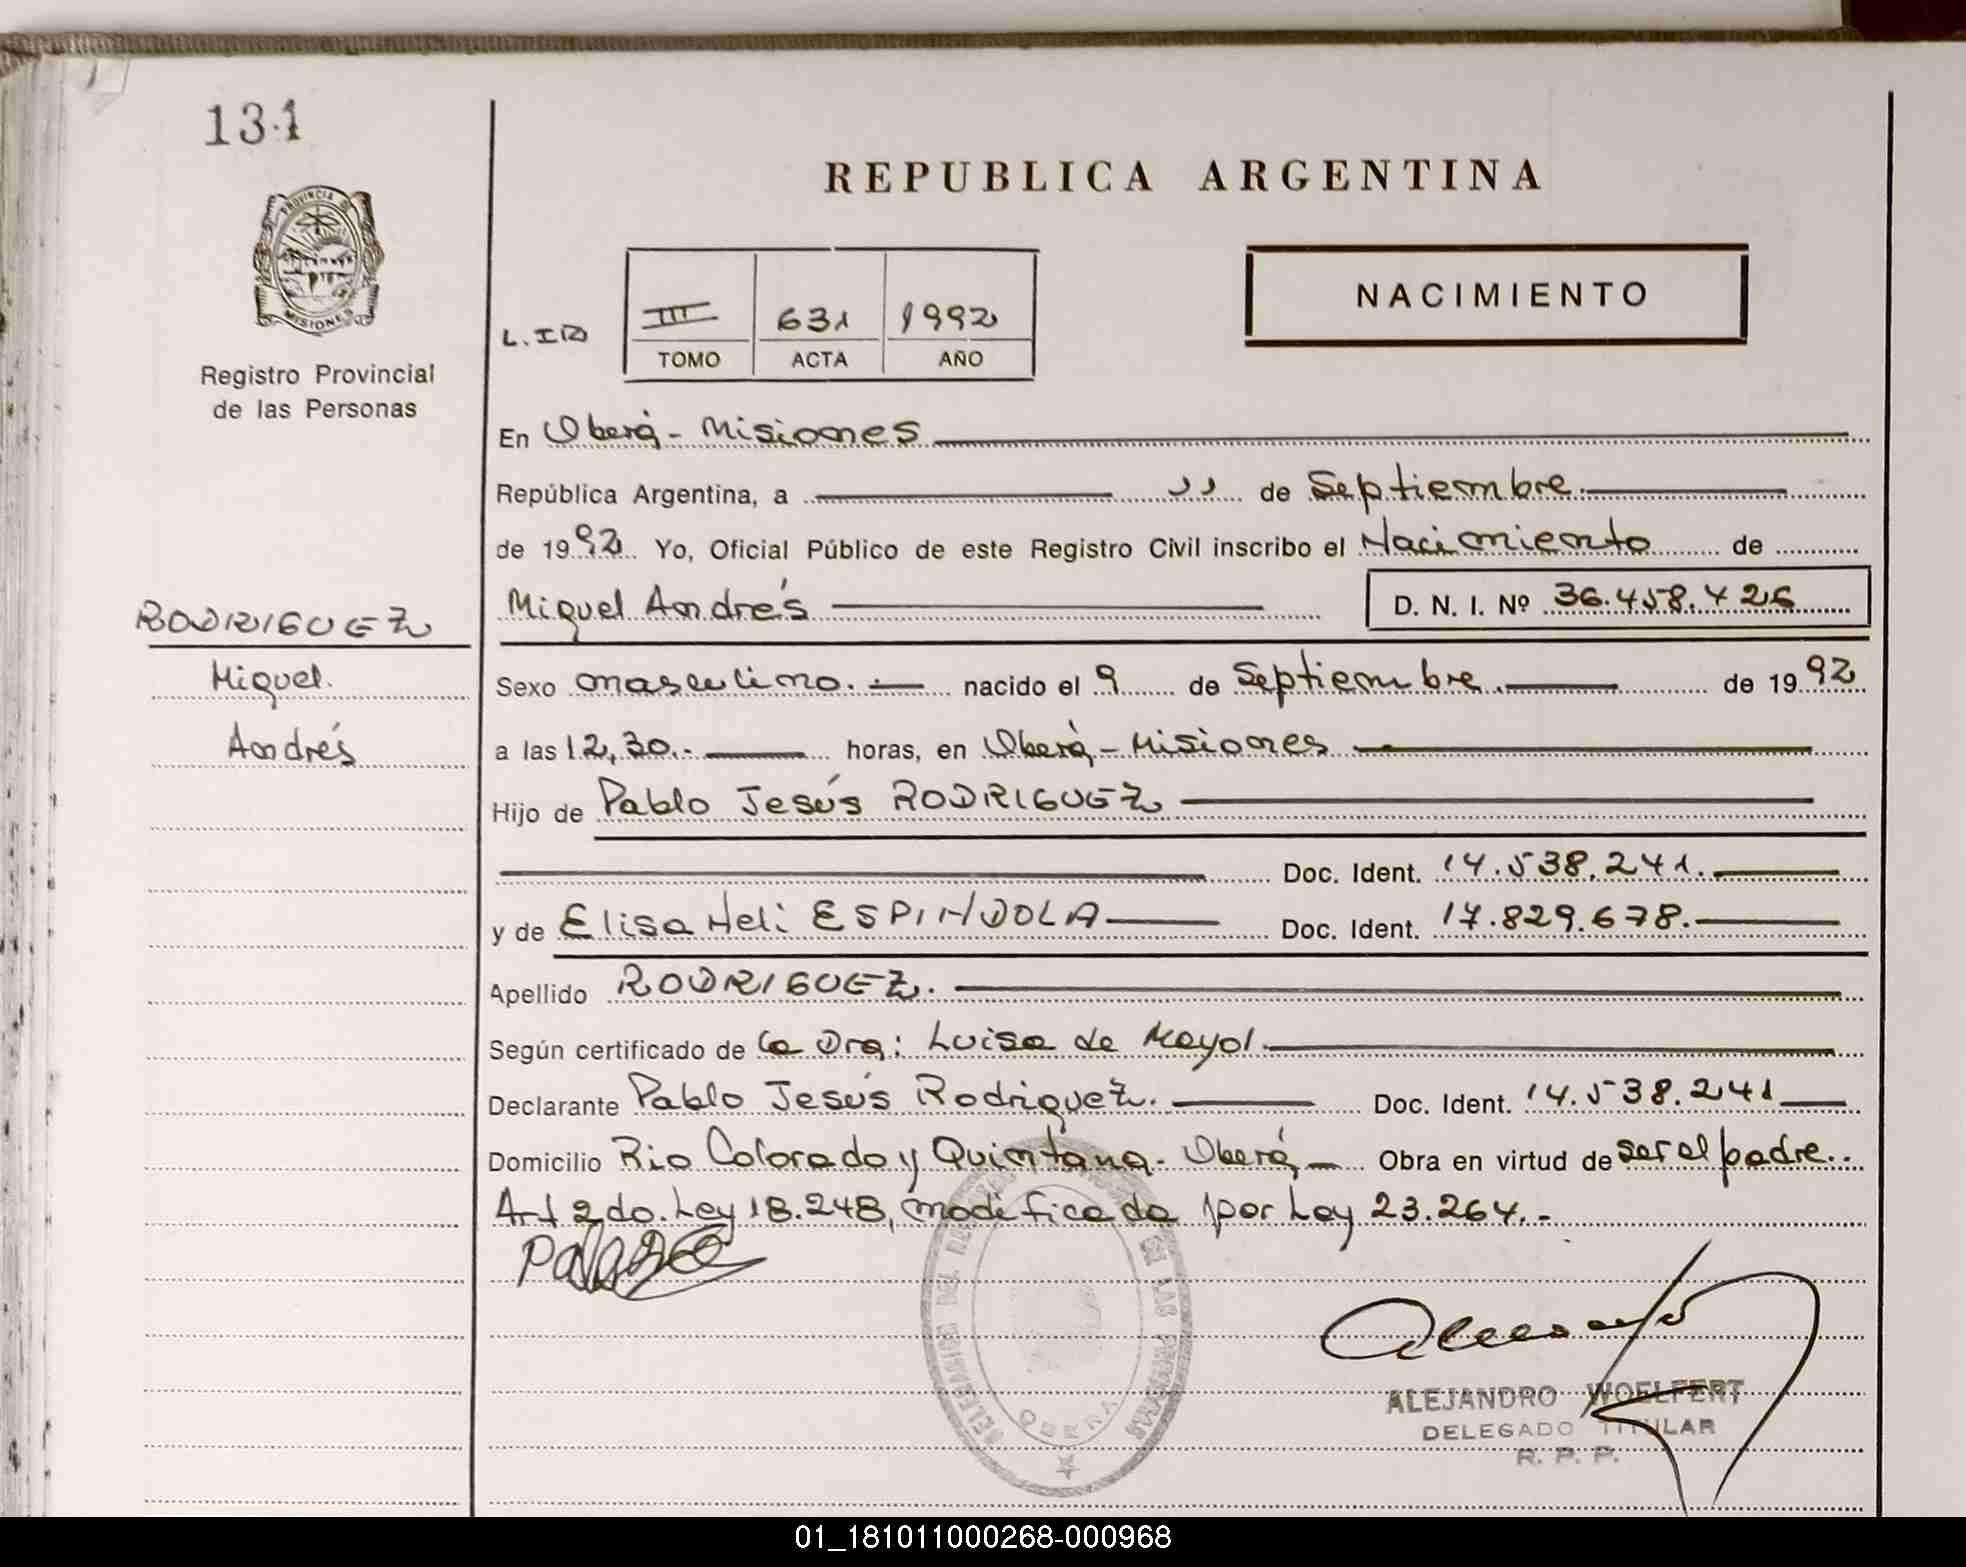 131
PROVINCIA DE
MISIONES
Registro Provincial
de las Personas
REPUBLICA ARGENTINA
NACIMIENTO
III 631 1992
TOMO ACTA AÑO
En Oberá - Misiones
República Argentina, a 11 de Septiembre.
de 1992 Yo, Oficial Público de este Registro Civil inscribo el Nacimiento de
Miguel Andrés D. N. I. Nº 36.458.426
RODRIGUEZ
Miguel.
Andrés
Sexo masculino. nacido el 9 de Septiembre. de 1992
a las 12,30.- horas, en Oberá - Misiones
Hijo de Pablo Jesús RODRIGUEZ
Doc. Ident. 14.538.241.
y de Elisa Heli ESPINDOLA Doc. Ident. 17.829.678.
Apellido RODRIGUEZ.
Según certificado de la Dra: Luisa de Mayol.
Declarante Pablo Jesús Rodriguez. Doc. Ident. 14.538.241
Domicilio Rio Colorado y Quintana. Oberá Obra en virtud de ser el padre..
Art 2do. Ley 18.248, modificada por Ley 23.264.-
OBERA
ALEJANDRO WOELFERT
DELEGADO TITULAR
R. P. P.
01_181011000268-000968